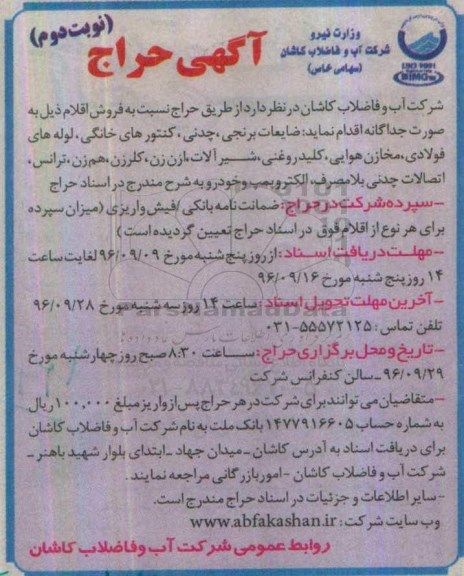 وزارت نیرو
شرکت آب و فاضلاب کاشان
(سهامی خاص)
ISO 9001
آگهی حراج
(نوبت دوم)
شرکت آب و فاضلاب کاشان در نظر دارد از طریق حراج نسبت به فروش اقلام ذیل به
صورت جداگانه اقدام نماید: ضایعات برنجی، چدنی، کنتور های خانگی، لوله های
فولادی، مخازن هوایی، کلید روغنی، شیر آلات، ازن زن، کلرزن، هم زن، ترانس،
اتصالات چدنی بلامصرف، الکتروپمپ و خودرو به شرح مندرج در اسناد حراج
-سپرده شرکت در حراج: ضمانت نامه بانکی /فیش واریزی (میزان سپرده
برای هر نوع از اقلام فوق در اسناد حراج تعیین گردیده است)
-مهلت دریافت اسناد: از روز پنج شنبه مورخ ۹۶/۰۹/۰۹ لغایت ساعت
۱۴ روز پنج شنبه مورخ ۹۶/۰۹/۱۶
-آخرین مهلت تحویل اسناد: ساعت ۱۴ روز سه شنبه مورخ ۹۶/۰۹/۲۸
تلفن تماس: ۵۵۵۷۲۱۲۵-۰۳۱
-تاریخ و محل برگزاری حراج: ساعت ۸:۳۰ صبح روز چهارشنبه مورخ
۹۶/۰۹/۲۹ - سالن کنفرانس شرکت
-متقاضیان می توانند برای شرکت در هر حراج پس از واریز مبلغ ۱۰۰,۰۰۰ ریال
به شماره حساب ۱۴۷۷۹۱۶۶۰۵ بانک ملت به نام شرکت آب و فاضلاب کاشان
برای دریافت اسناد به آدرس کاشان - میدان جهاد - ابتدای بلوار شهید باهنر -
شرکت آب و فاضلاب کاشان - امور بازرگانی مراجعه نمایند.
-سایر اطلاعات و جزئیات در اسناد حراج مندرج است.
وب سایت شرکت: www.abfakashan.ir
روابط عمومی شرکت آب و فاضلاب کاشان